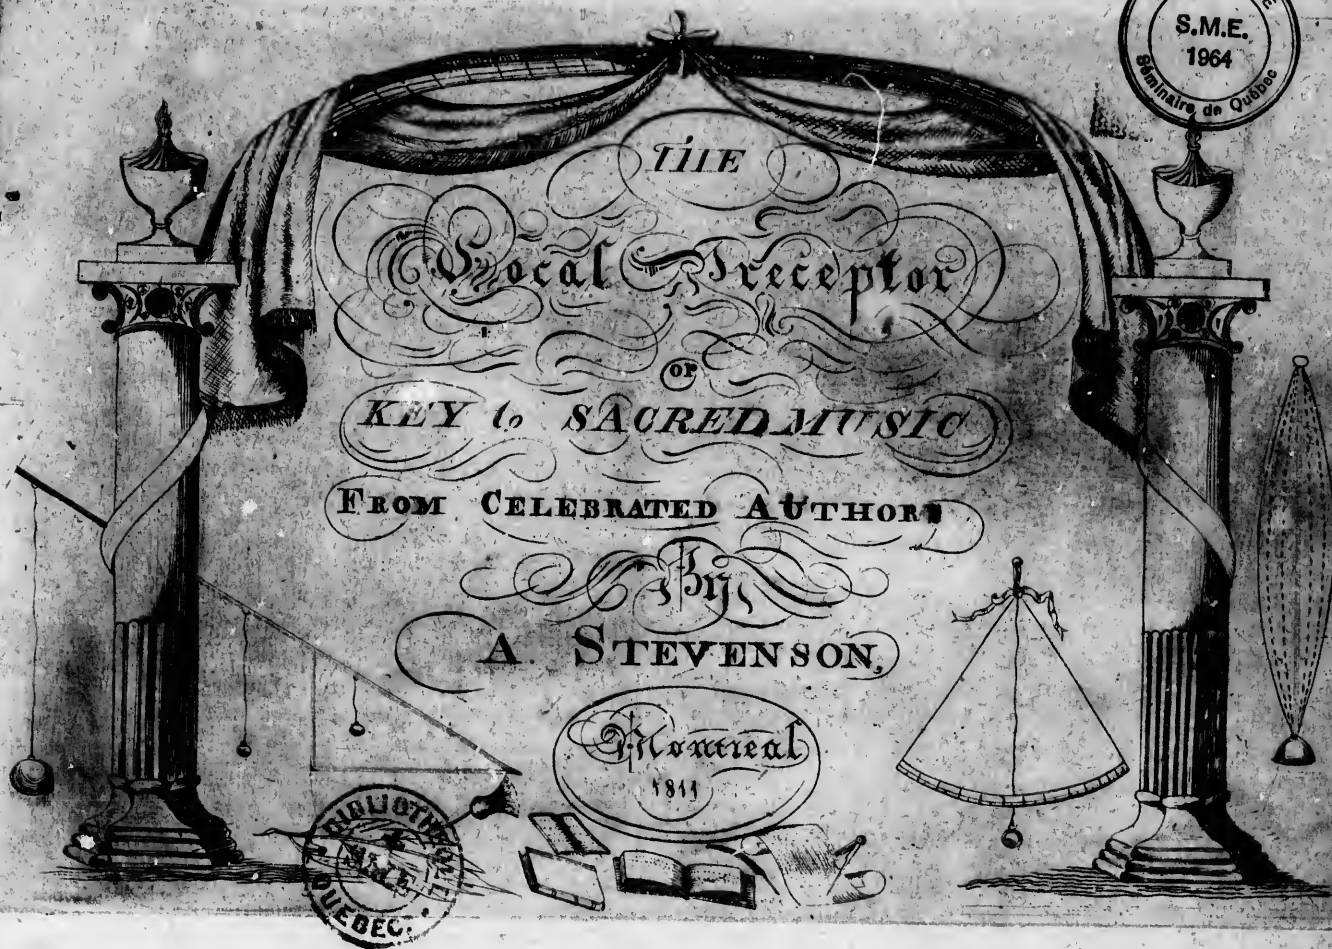 S.M.E.
1964
Séminaire de Québec
THE
Vocal Preceptor
OR
KEY to SACRED MUSIC
FROM CELEBRATED AUTHORS
By
A. STEVENSON,
Montreal
1811
BIBLIOTHÈQUE
QUÉBEC.